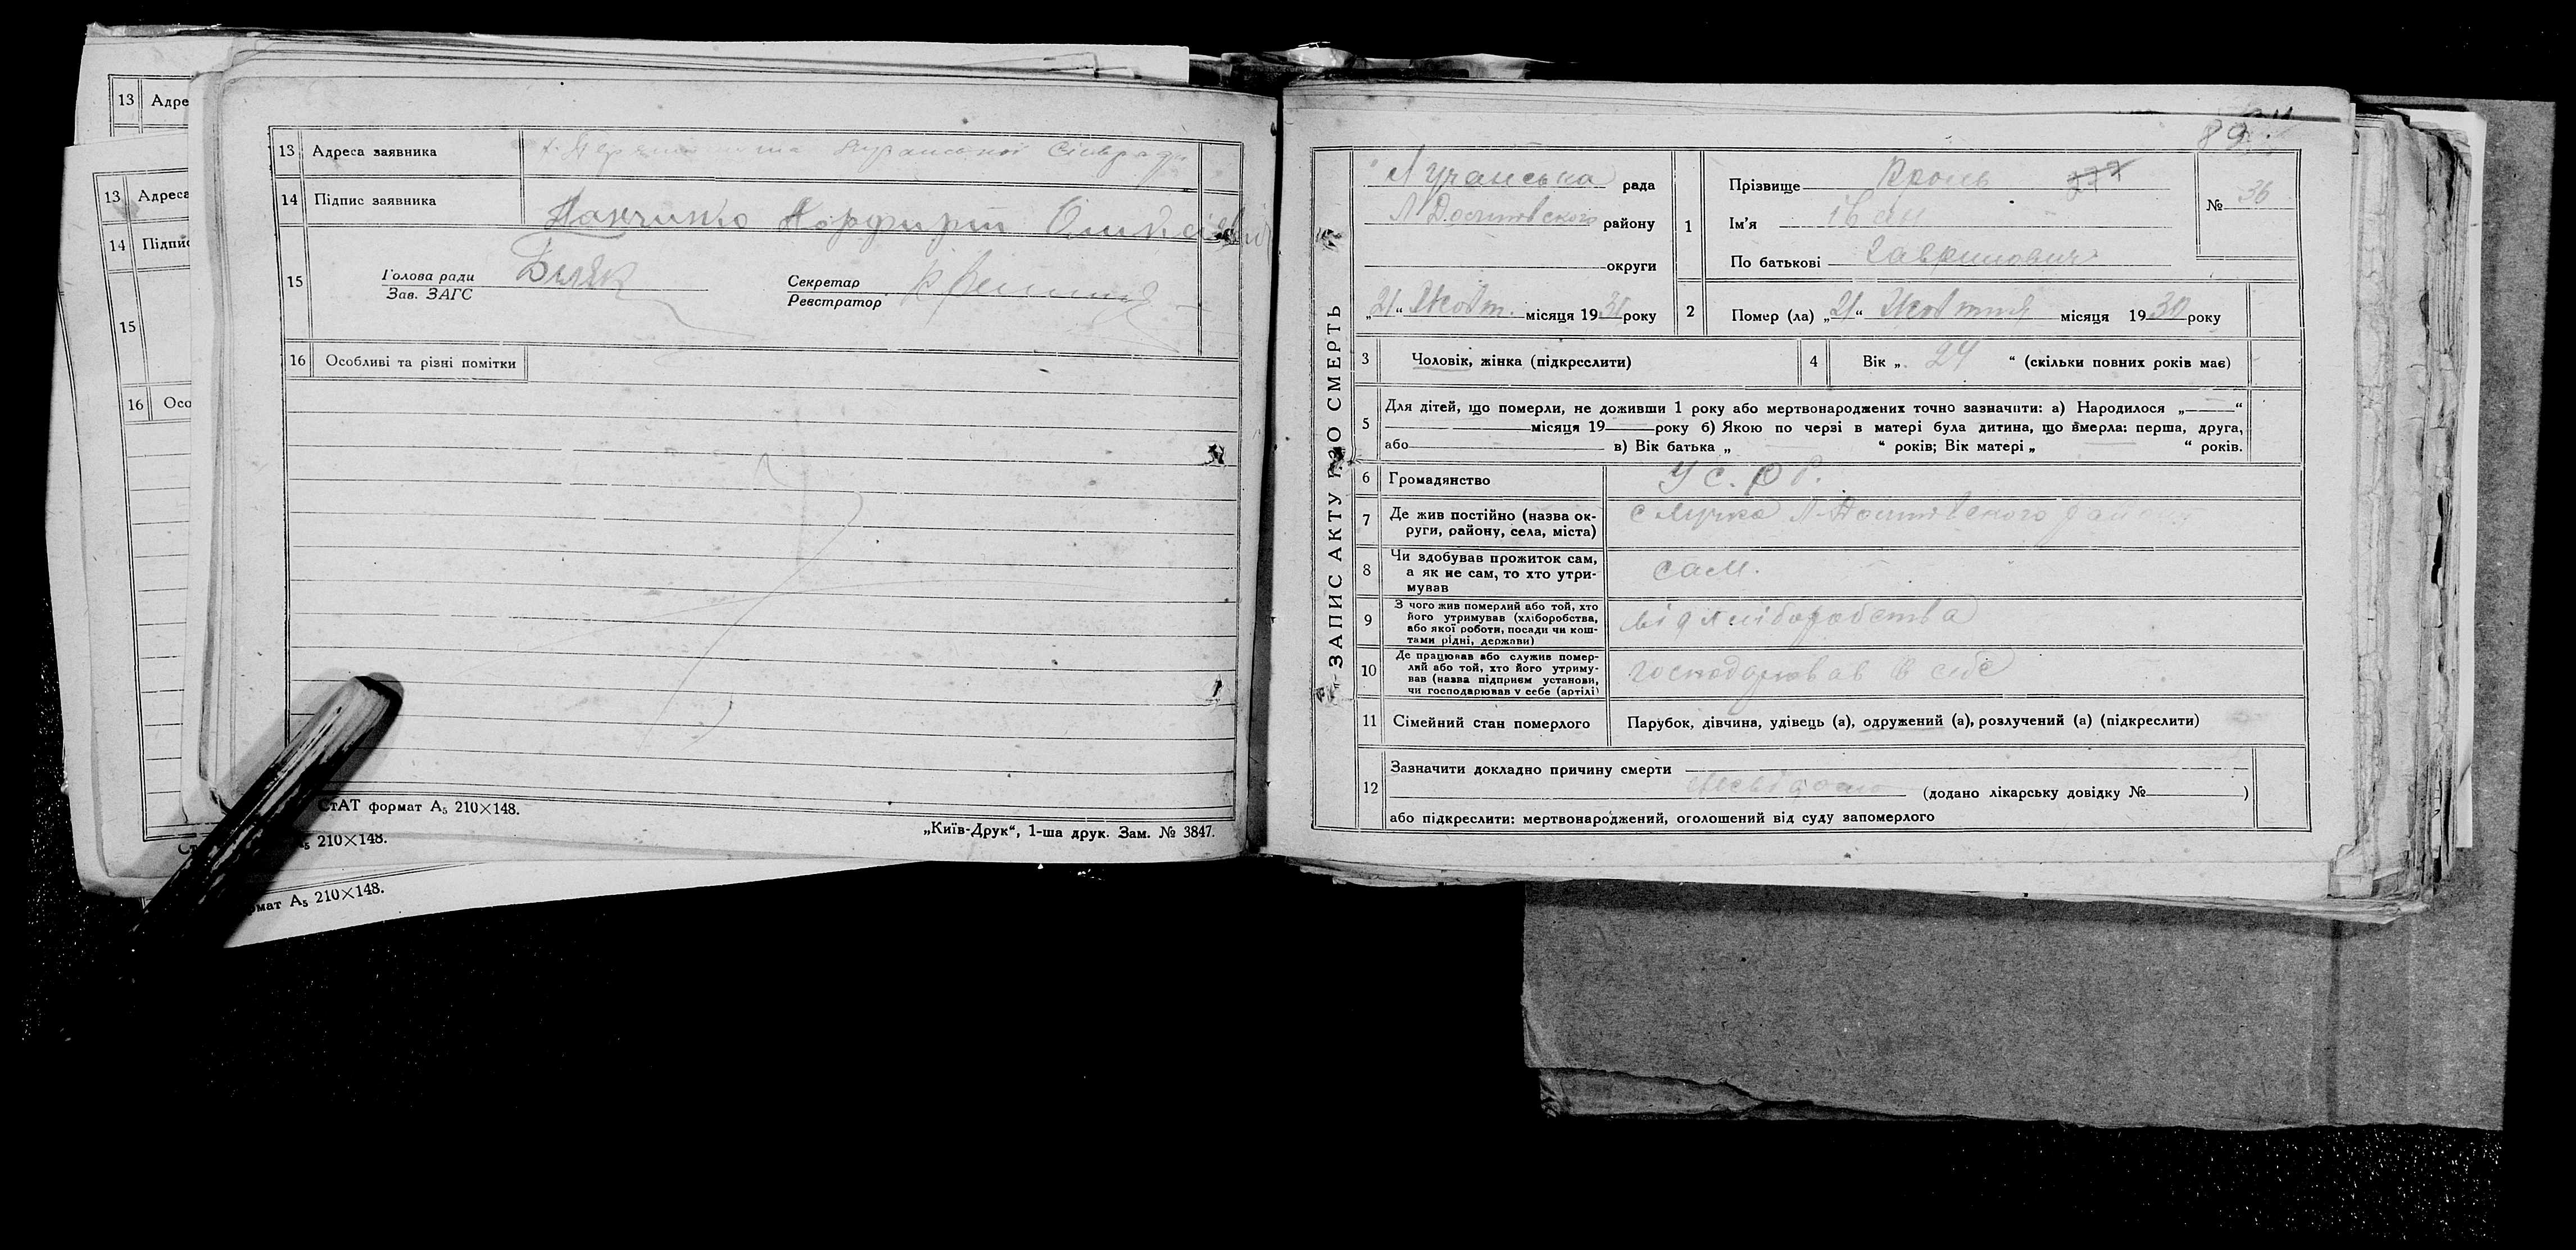 13 Адре
13 Адреса
14 Підпис
15
16 Осо
13 Адреса заявника Сільради
14 Підпис заявника Панчишко Порфирій
15 Голова ради Біляк Секретар
Зав. ЗАГС Реєстратор
16 Особливі та різні помітки
СтАТ формат А5 210×148.
„Київ-Друк“, 1-ша друк. Зам. № 3847.
210×148.
рмат А5 210×148.
89
ЗАПИС АКТУ ПРО СМЕРТЬ
Лучанська рада
району
округи
„21“ Жовт. місяця 1930 року
1 Прізвище Кроль
Ім'я Іван
По батькові Гаврилович
№ 36
2 Помер (ла) „21“ Жовтня місяця 1930 року
3 Чоловік, жінка (підкреслити)
4 Вік „ 24 “ (скільки повних років має)
5 Для дітей, що померли, не доживши 1 року або мертвонароджених точно зазначити: а) Народилося „ “
місяця 19 року б) Якою по черзі в матері була дитина, що вмерла: перша, друга,
або в) Вік батька „ “ років; Вік матері „ “ років.
6 Громадянство У.С.Р.Р.
7 Де жив постійно (назва ок-
руги, району, села, міста) с Лучка
8 Чи здобував прожиток сам,
а як не сам, то хто утри-
мував сам.
9 З чого жив померлий або той, хто
його утримував (хліборобства,
або якої роботи, посади чи кош-
тами рідні, держави) від хліборобства
10 Де працював або служив помер-
лий або той, хто його утриму-
вав (назва підприєм установи,
чи господарював у себе (артілі) господарював в себе
11 Сімейний стан померлого Парубок, дівчина, удівець (а), одружений (а), розлучений (а) (підкреслити)
12 Зазначити докладно причину смерти
невідомо (додано лікарську довідку № )
або підкреслити: мертвонароджений, оголошений від суду запомерлого